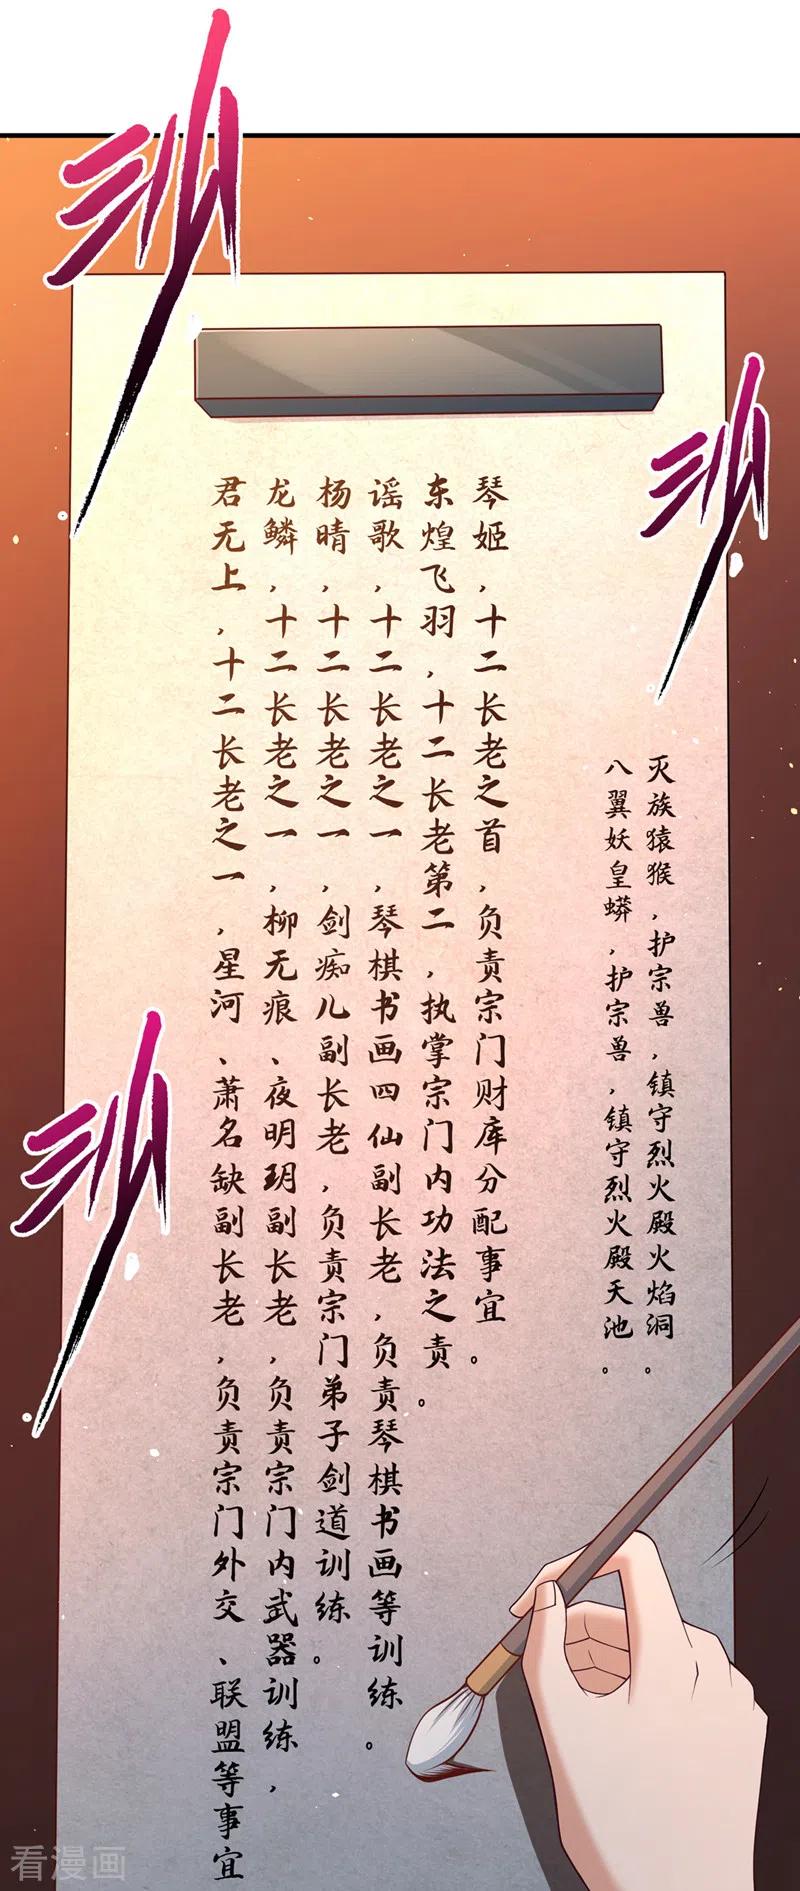 唰
唰
灭族猿猴，护宗兽，镇守烈火殿火焰洞。
八翼妖皇蟒，护宗兽，镇守烈火殿天池。
琴姬，十二长老之首，负责宗门财库分配事宜。
东煌飞羽，十二长老第二，执掌宗门内功法之责。
谣歌，十二长老之一，琴棋书画四仙副长老，负责琴棋书画等训练。
杨晴，十二长老之一，剑痴儿副长老，负责宗门弟子剑道训练。
龙鳞，十二长老之一，柳无痕、夜明玥副长老，负责宗门内武器训练，
君无上，十二长老之一，星河、萧名缺副长老，负责宗门外交、联盟等事宜
唰
看漫画